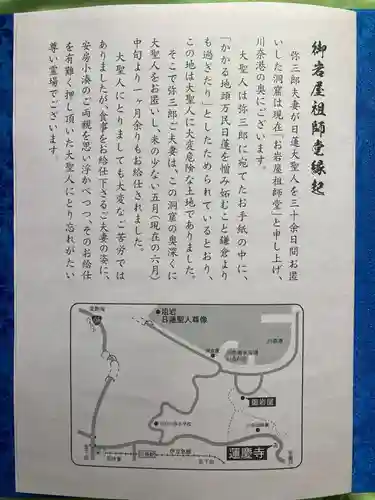 御岩屋祖師堂縁起
弥三郎夫妻が日蓮大聖人を三十余日間お匿
いした洞窟は現在「お岩屋祖師堂」と申し上げ、
川奈港の奥にございます。
大聖人は弥三郎に宛てたお手紙の中に、
「かかる地頭万民日蓮を憎み妬むこと鎌倉より
も過ぎたり」としたためられているとおり、
この地は大聖人に大変危険な土地でありました。
そこで弥三郎ご夫妻は、この洞窟の奥深くに
大聖人をお匿いし、米の少ない五月(現在の六月)
中旬より一ヶ月余りもお給仕されました。
大聖人にとりましても大変なご苦労では
ありましたが、食事をお給仕下さるご夫妻の姿に、
安房小湊のご両親を思い浮かべつつ、そのお給仕
を有難く押し頂いた大聖人にとり忘れがたい
尊い霊場でございます。
俎岩
日蓮聖人尊像
川奈港
御岩屋
蓮慶寺
伊豆急線
川奈駅